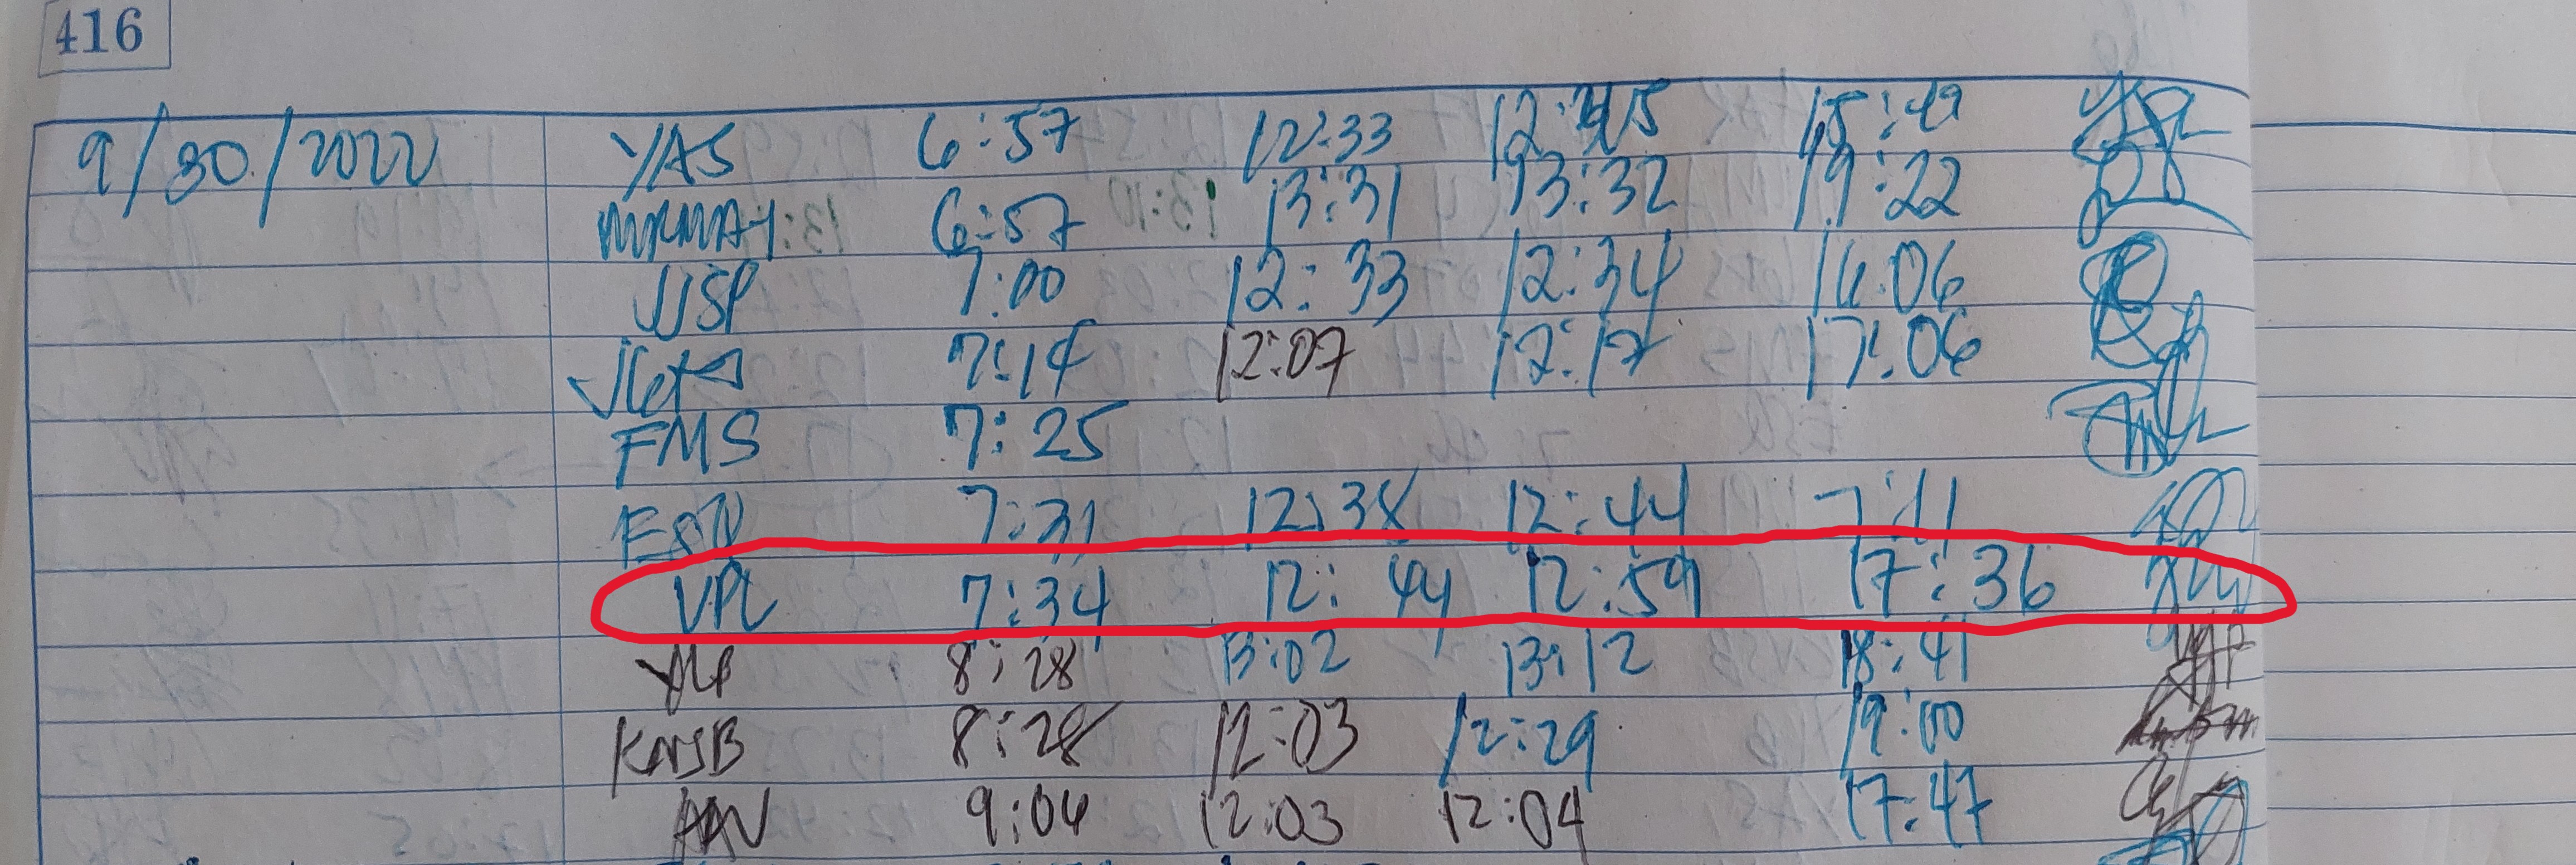 416
9/30/2022 YAS 6:57 12:33 12:45 15:49
MKMAY 6:57 13:31 13:32 19:22
JJSP 7:00 12:33 12:34 16:06
7:14 12:07 12:17 17:06
FMS 7:25
7:31 12:38 12:44 7:11
VPL 7:34 12:44 12:59 17:36
YLP 8:28 13:02 13:12 18:41
KNSB 8:28 12:03 12:29 19:00
AAV 9:04 12:03 12:04 17:47